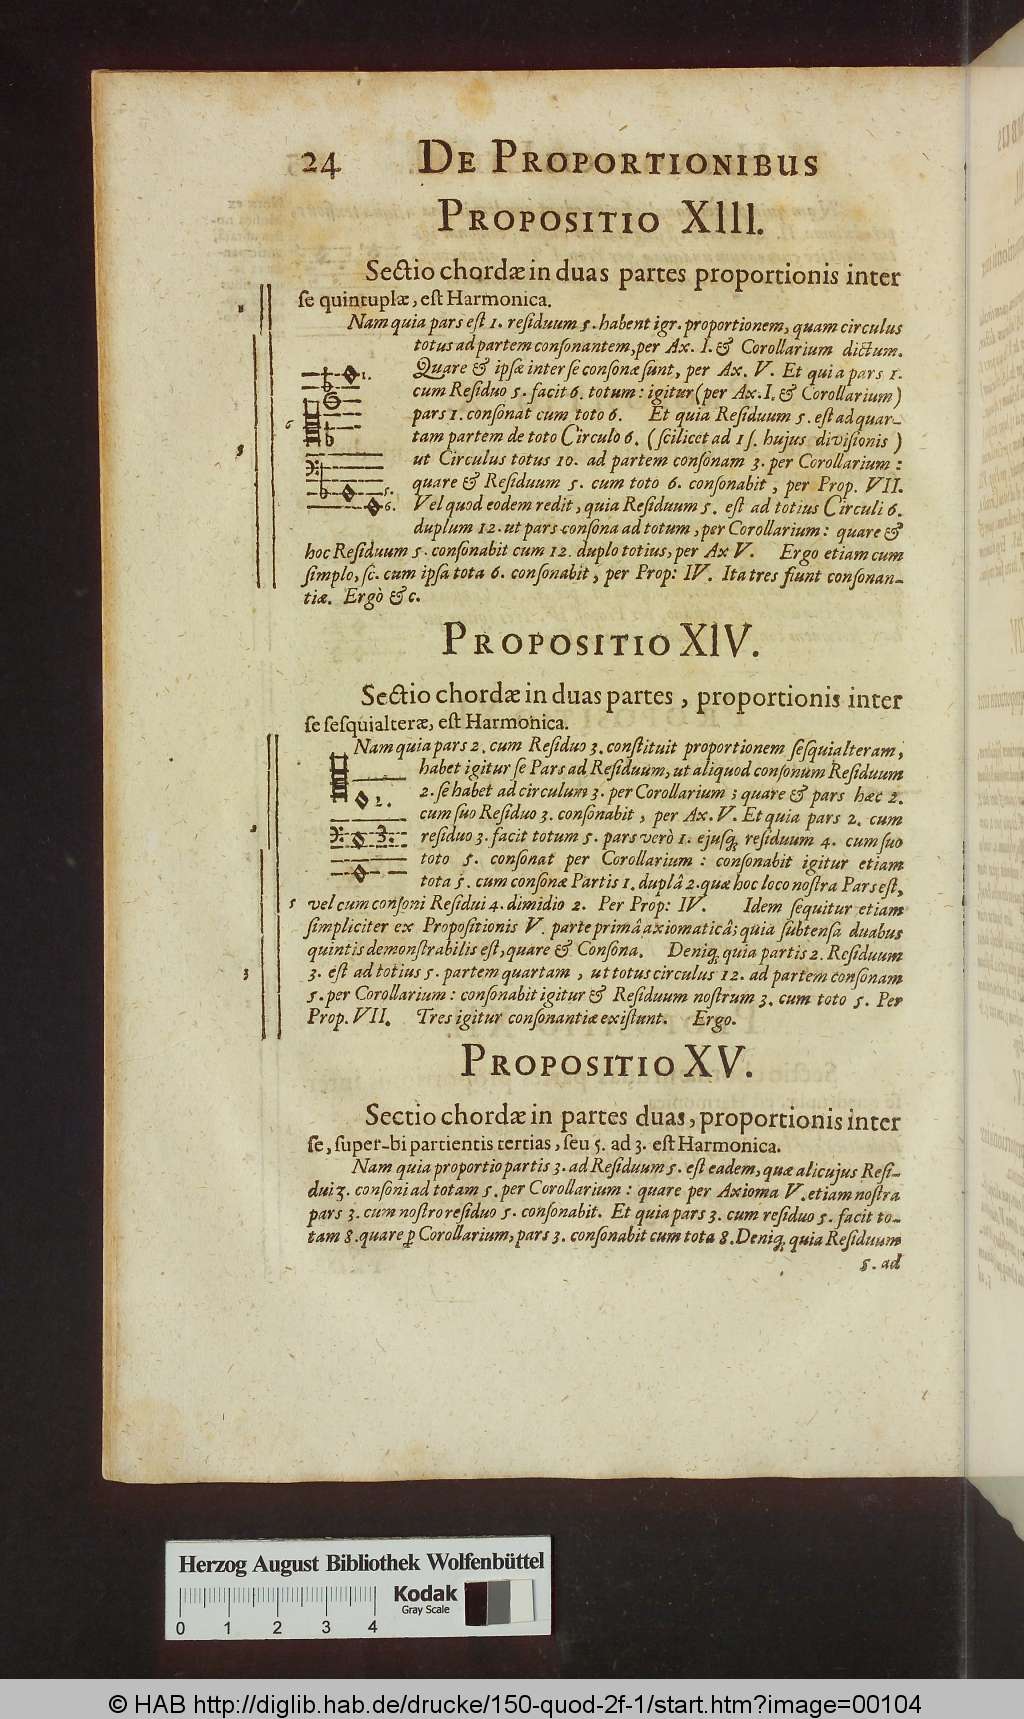 24 DE PROPORTIONIBUS
PROPOSITIO XIII.
Sectio chordæ in duas partes proportionis inter
se quintuplæ, est Harmonica.
Nam quia pars est 1. residuum 5. habent igr. proportionem, quam circulus
totus ad partem consonantem, per Ax. I. & Corollarium dictum.
Quare & ipsæ inter se consonæ sunt, per Ax. V. Et quia pars 1.
cum Residuo 5. facit 6. totum: igitur (per Ax. I. & Corollarium)
pars 1. consonat cum toto 6. Et quia Residuum 5. est ad quar-
tam partem de toto Circulo 6. (scilicet ad 1 ʃ. hujus divisionis)
ut Circulus totus 10. ad partem consonam 3. per Corollarium:
quare & Residuum 5. cum toto 6. consonabit, per Prop. VII.
Vel quod eodem redit, quia Residuum 5. est ad totius Circuli 6.
duplum 12. ut pars consona ad totum, per Corollarium: quare &
hoc Residuum 5. consonabit cum 12. duplo totius, per Ax V. Ergo etiam cum
simplo, sc. cum ipsa tota 6. consonabit, per Prop: IV. Ita tres fiunt consonan-
tiæ. Ergò &c.
1.
6
5.
6.
PROPOSITIO XIV.
Sectio chordæ in duas partes, proportionis inter
se sesquialteræ, est Harmonica.
Nam quia pars 2. cum Residuo 3. constituit proportionem sesquialteram,
habet igitur se Pars ad Residuum, ut aliquod consonum Residuum
2. se habet ad circulum 3. per Corollarium; quare & pars hæc 2.
cum suo Residuo 3. consonabit, per Ax. V. Et quia pars 2. cum
residuo 3. facit totum 5. pars verò 1. ejusq; residuum 4. cum suo
toto 5. consonat per Corollarium: consonabit igitur etiam
tota 5. cum consonæ Partis 1. duplâ 2. quæ hoc loco nostra Pars est,
vel cum consoni Residui 4. dimidio 2. Per Prop: IV. Idem sequitur etiam
simpliciter ex Propositionis V. parte primâ axiomaticâ; quia subtensa duabus
quintis demonstrabilis est, quare & Consona. Deniq; quia partis 2. Residuum
3. est ad totius 5. partem quartam, ut totus circulus 12. ad partem consonam
5. per Corollarium: consonabit igitur & Residuum nostrum 3. cum toto 5. Per
Prop. VII. Tres igitur consonantiæ existunt. Ergo.
2.
3.
5
3
PROPOSITIO XV.
Sectio chordæ in partes duas, proportionis inter
se, super-bi partientis tertias, seu 5. ad 3. est Harmonica.
Nam quia proportio partis 3. ad Residuum 5. est eadem, quæ alicujus Resi-
dui 3. consoni ad totam 5. per Corollarium: quare per Axioma V. etiam nostra
pars 3. cum nostro residuo 5. consonabit. Et quia pars 3. cum residuo 5. facit to-
tam 8. quare ꝑ Corollarium, pars 3. consonabit cum tota 8. Deniq; quia Residuum
5. ad
Herzog August Bibliothek Wolfenbüttel
0 1 2 3 4
Kodak
Gray Scale
© HAB http://diglib.hab.de/drucke/150-quod-2f-1/start.htm?image=00104